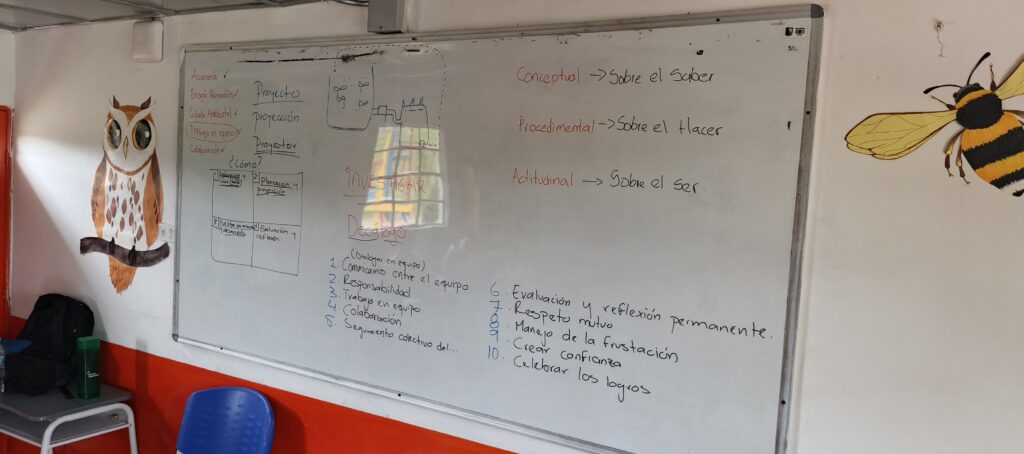 Acuaponía ✓
Energía Renovables ✓
Cuidado Ambiental ✓
Trabajo en equipo ✓
Colaboración ✓
Proyecto
proyección
Proyector
¿Cómo?
1
2 Planeación y
3
4 Evaluación y
reflexión
INVESTIGAR
Decálogo
(Dialogar en equipo)
1. Comunicarnos entre el equipo
2. Responsabilidad
3. Trabajo en equipo
4. Colaboración
5. Seguimiento colectivo del...
6. Evaluación y reflexión permanente.
7. Respeto mutuo
8. Manejo de la frustación
9. Crear confianza
10. Celebrar los logros
Conceptual → Sobre el Saber
Procedimental → Sobre el Hacer
Actitudinal → Sobre el Ser.